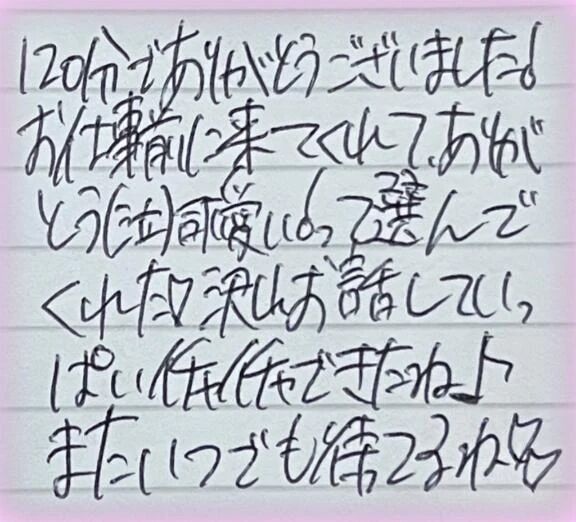 120分でありがとうございました!
お仕事前に来てくれて、ありが
とう(泣)可愛い!って選んで
くれた♡沢山お話していっ
ぱいイチャイチャできたね♪
またいつでも待ってるね♡